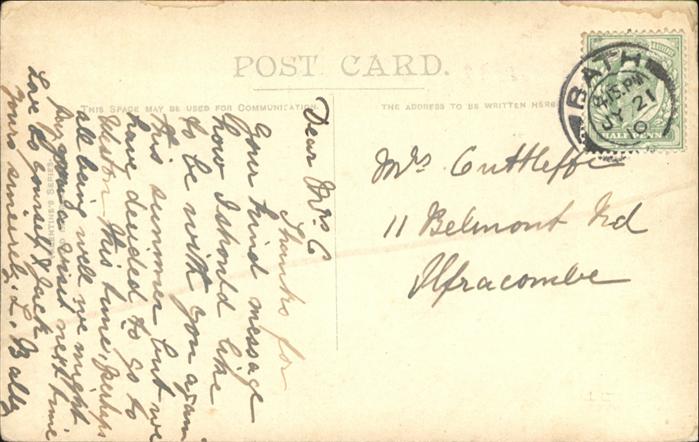 POST CARD.
THIS SPACE MAY BE USED FOR COMMUNICATION.
THE ADDRESS TO BE WRITTEN HERE
VALENTINE'S SERIES
BATH
8.15.PM
JY 21
10
HALFPENNY
Mrs Cuttleffe
11 Belmont Rd
Ilfracombe
Dear Mrs C
Thanks for
your kind message
how I should like
to be with you again
this summer but we
have decided to go to
Weston this time, perhaps
all being well we might
pay you a visit next time
Love to yourself & Jack
yours sincerely, L. Bally